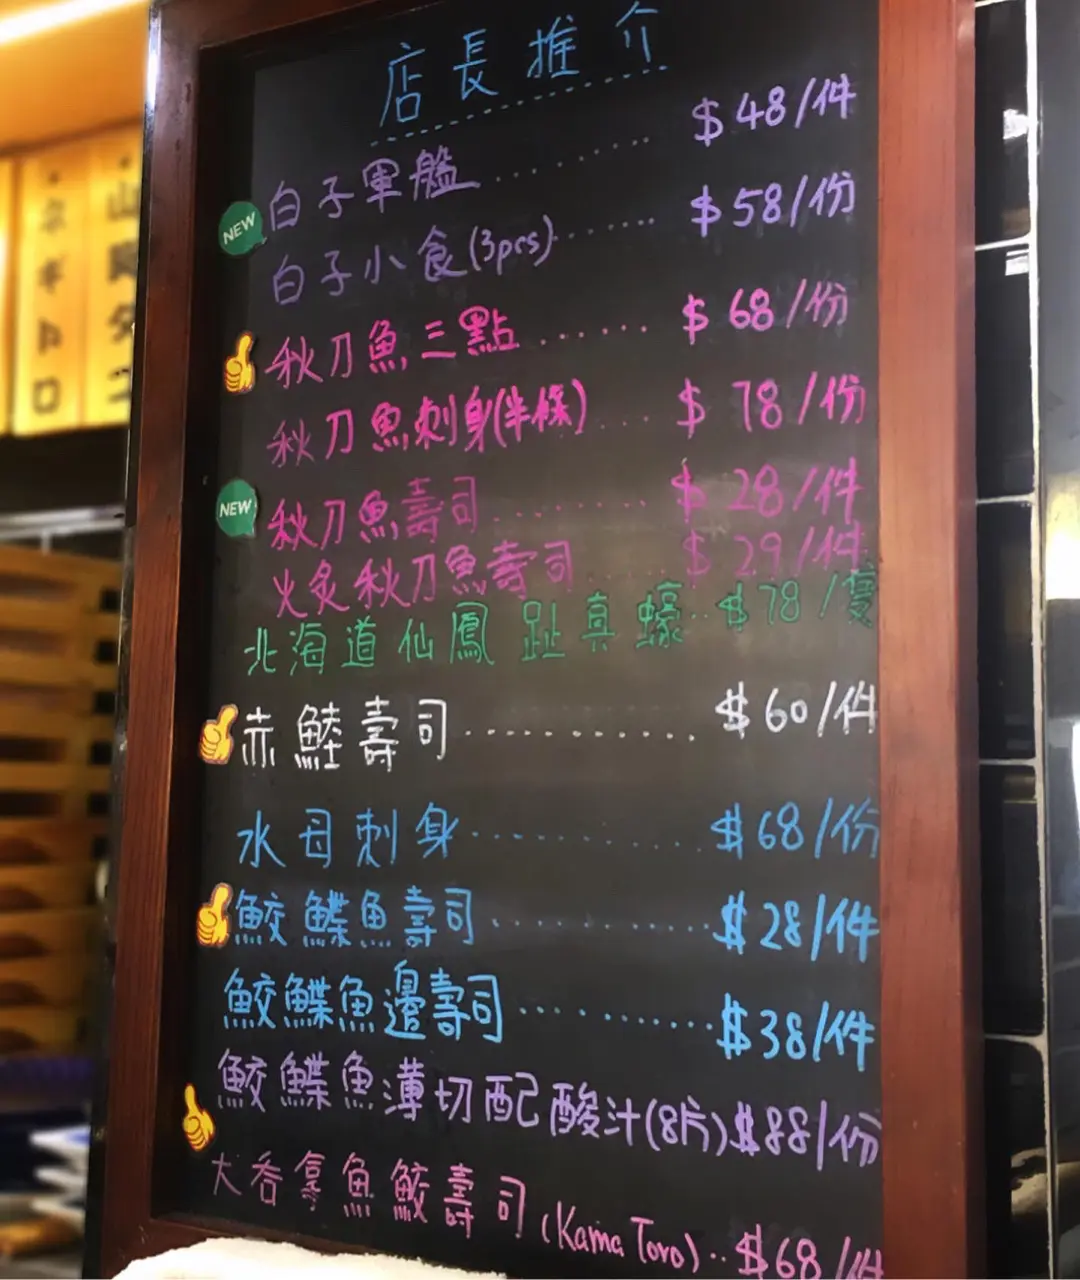 店長推介
白子軍艦 ........ $48/件
NEW
白子小食(3pcs) ........ $58/份
秋刀魚三點 ....... $68/份
秋刀魚刺身(半條) .... $78/份
NEW
秋刀魚壽司 ......... $28/件
火炙秋刀魚壽司 .... $29/件
北海道仙鳳趾真蠔 .. $78/隻
赤鯥壽司 ............ $60/件
水母刺身 ........... $68/份
鮫鰈魚壽司 ........... $28/件
鮫鰈魚邊壽司 ........... $38/件
鮫鰈魚薄切配酸汁(8片) $88/份
大吞拿魚鮫壽司(Kama Toro) .. $68/件
ネギトロ